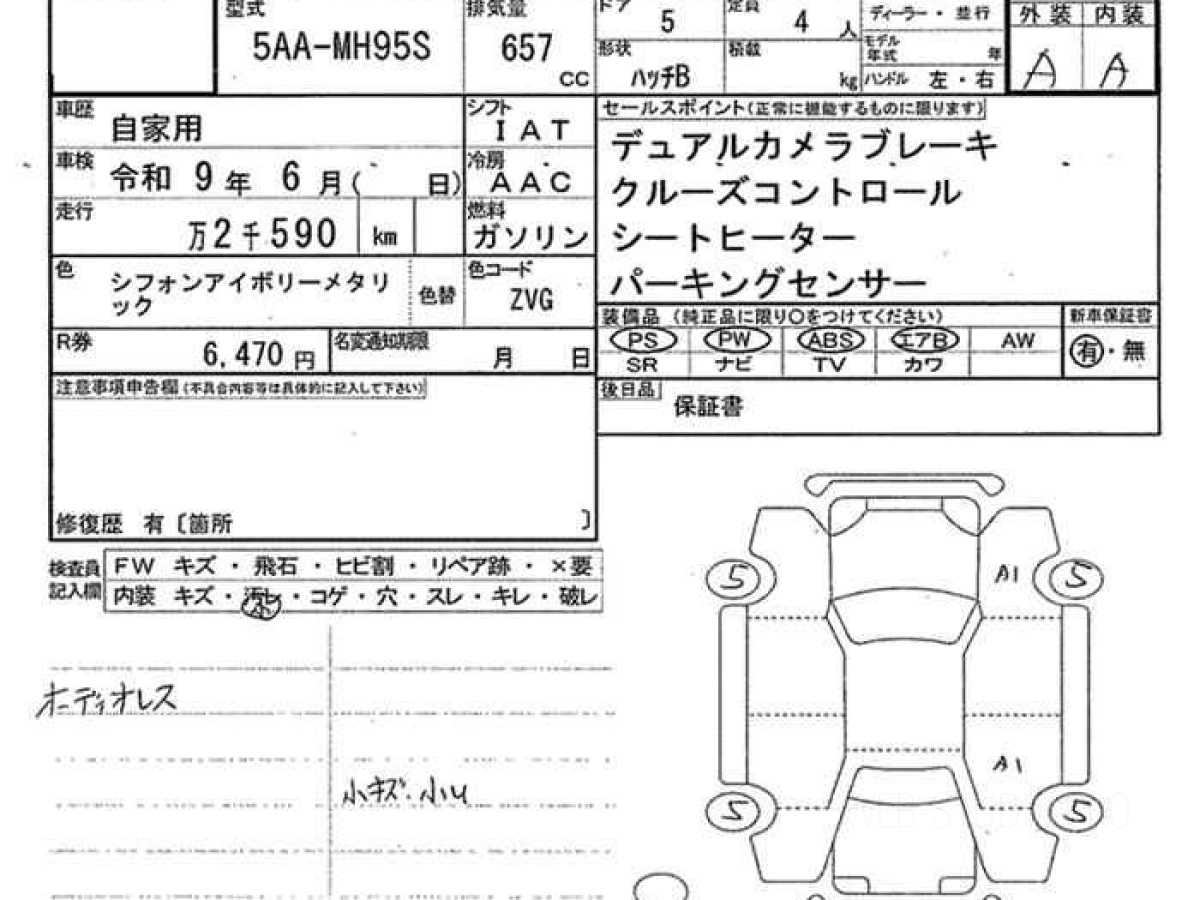 型式 排気量 ドア 5 定員 4 人 ディーラー・並行 外装 内装
5AA-MH95S 657 CC 形状 ハッチB 積載 kg モデル年式 年 A A
ハンドル 左・右
車歴 自家用 シフト IAT
車検 令和 9年 6月( 日) 冷房 AAC
走行 万2千590 km 燃料 ガソリン
色 シフォンアイボリーメタリ
ック 色替 色コード ZVG
R券 6,470円 名変通知期限 月 日
セールスポイント(正常に機能するものに限ります)
デュアルカメラブレーキ
クルーズコントロール
シートヒーター
パーキングセンサー
装備品 (純正品に限り〇をつけてください) 新車保証書
PS PW ABS エアB AW 有・無
SR ナビ TV カワ
後日品 保証書
注意事項申告欄(不具合内容等は具体的に記入して下さい)
修復歴 有〔箇所 〕
検査員
記入欄
FW キズ・飛石・ヒビ割・リペア跡・×要
内装 キズ・汚レ・コゲ・穴・スレ・キレ・破レ
小
オーディオレス
小キズ.小U
5 A1 5
A1
5 5